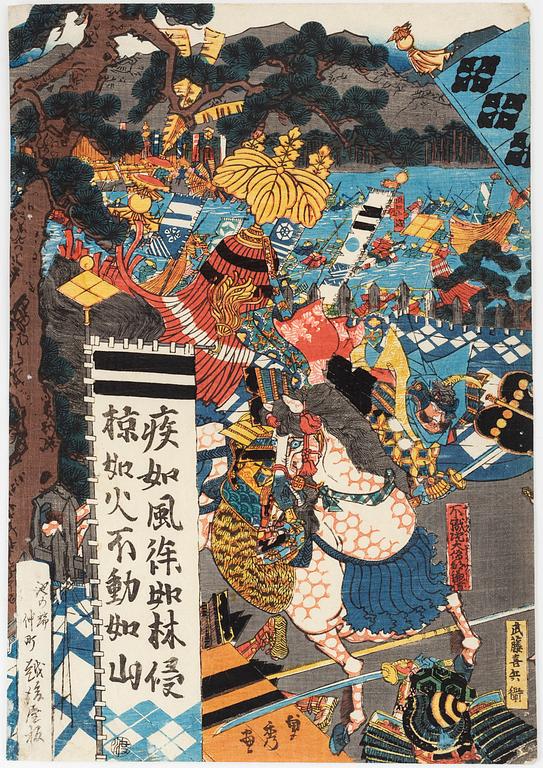 疾如風徐如林侵
掠如火不動如山
武藤喜兵衛
貞秀画
池の端
仲町
越後屋板